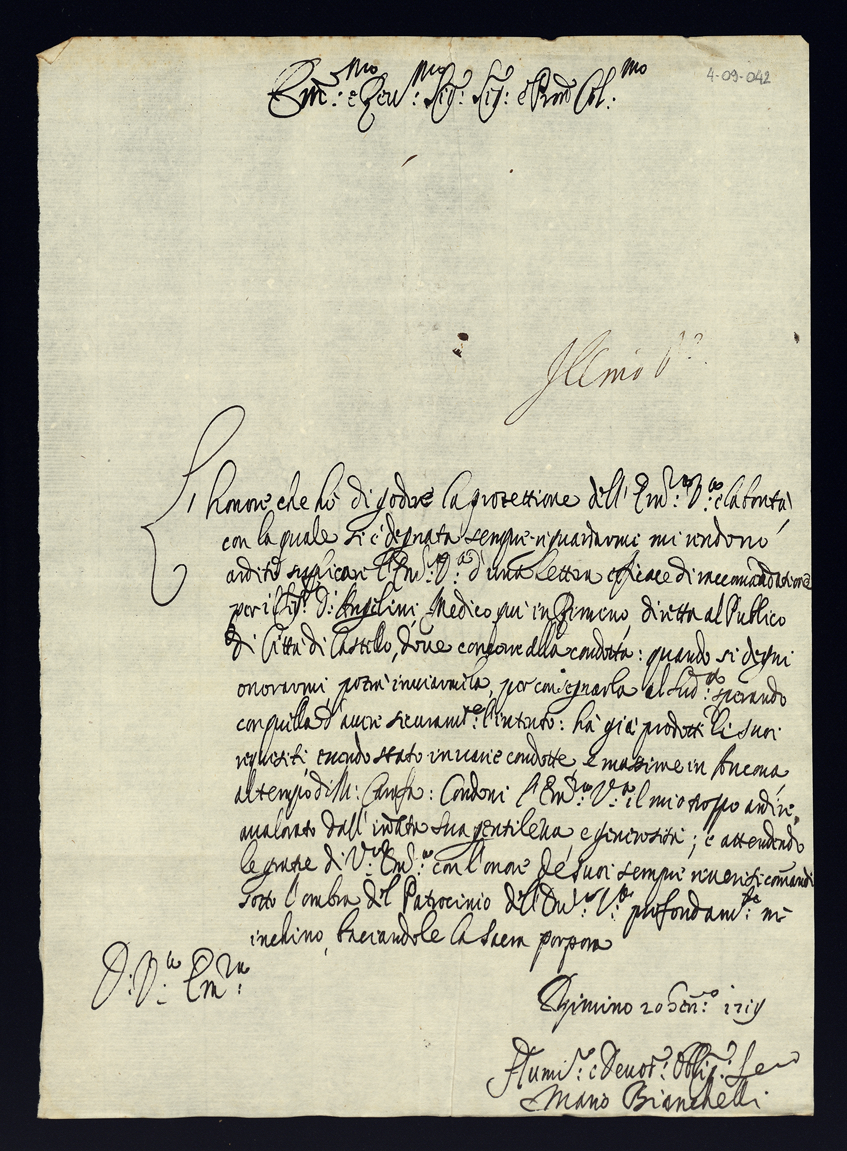 4-09-042
Em.mo e Reu.mo Sig.r Sig.r e Pron Col.mo
Ill.mo
L'honore che hò di godere la protettione dell'Em.za V.a e la bontà
con la quale si è degnata sempre riguardarmi mi rendono
ardito supplicare l'Em.za V.a d'una lettera efficace di raccomandatione
per il Sig.r D.r Angelini Medico quì in Rimino diretta al Publico
di Città di Castello, doue concorre alla condotta: quando si degni
onorarmi potrà inuiarmila, per consegnarla al Sud.o sperando
con quella d'auere sicuram.te l'intento: hà già prodotti li suoi
requisiti essendo stato in uarie condotte e massime in Ancona
al tempo di M.r Condoni l'Em.za V.a il mio troppo ardire,
aualorato dall'innata sua gentilezza e generosità; e attendendo
le gratie di V.a Em.za con l'onore de suoi sempre riueriti comandi
sotto l'ombra del Patrocinio dell'Em.za V.a profondam.te mi
inchino, baciandole la Sacra porpora
D: V.a Em.za
Rimino 20 Gen.o 1719
Humil.o e Deuot.o Obblig.o Ser
Mario Bianchelli